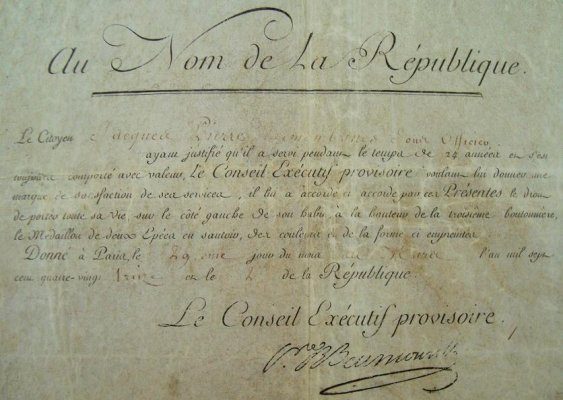 Au Nom de La République.
Le Citoyen Jacques Pierre Sous Officier
ayant justifié qu'il a servi pendant le temps de 24 années et s'est
toujours comporté avec valeur, Le Conseil Exécutif provisoire voulant lui donner une
marque de satisfaction de ses services, il lui a accordé et accorde par ces Présentes le droit
de porter toute sa Vie, sur le côté gauche de son habit, à la hauteur de la troisieme boutonniere,
le Medaillon de deux Epées en sautoir, des couleurs et de la forme ci empreintes
Donné à Paris, le 29 eme jour du mois l'an mil sept
cent quatre-vingt treize et le 2 de la République.
Le Conseil Exécutif provisoire.